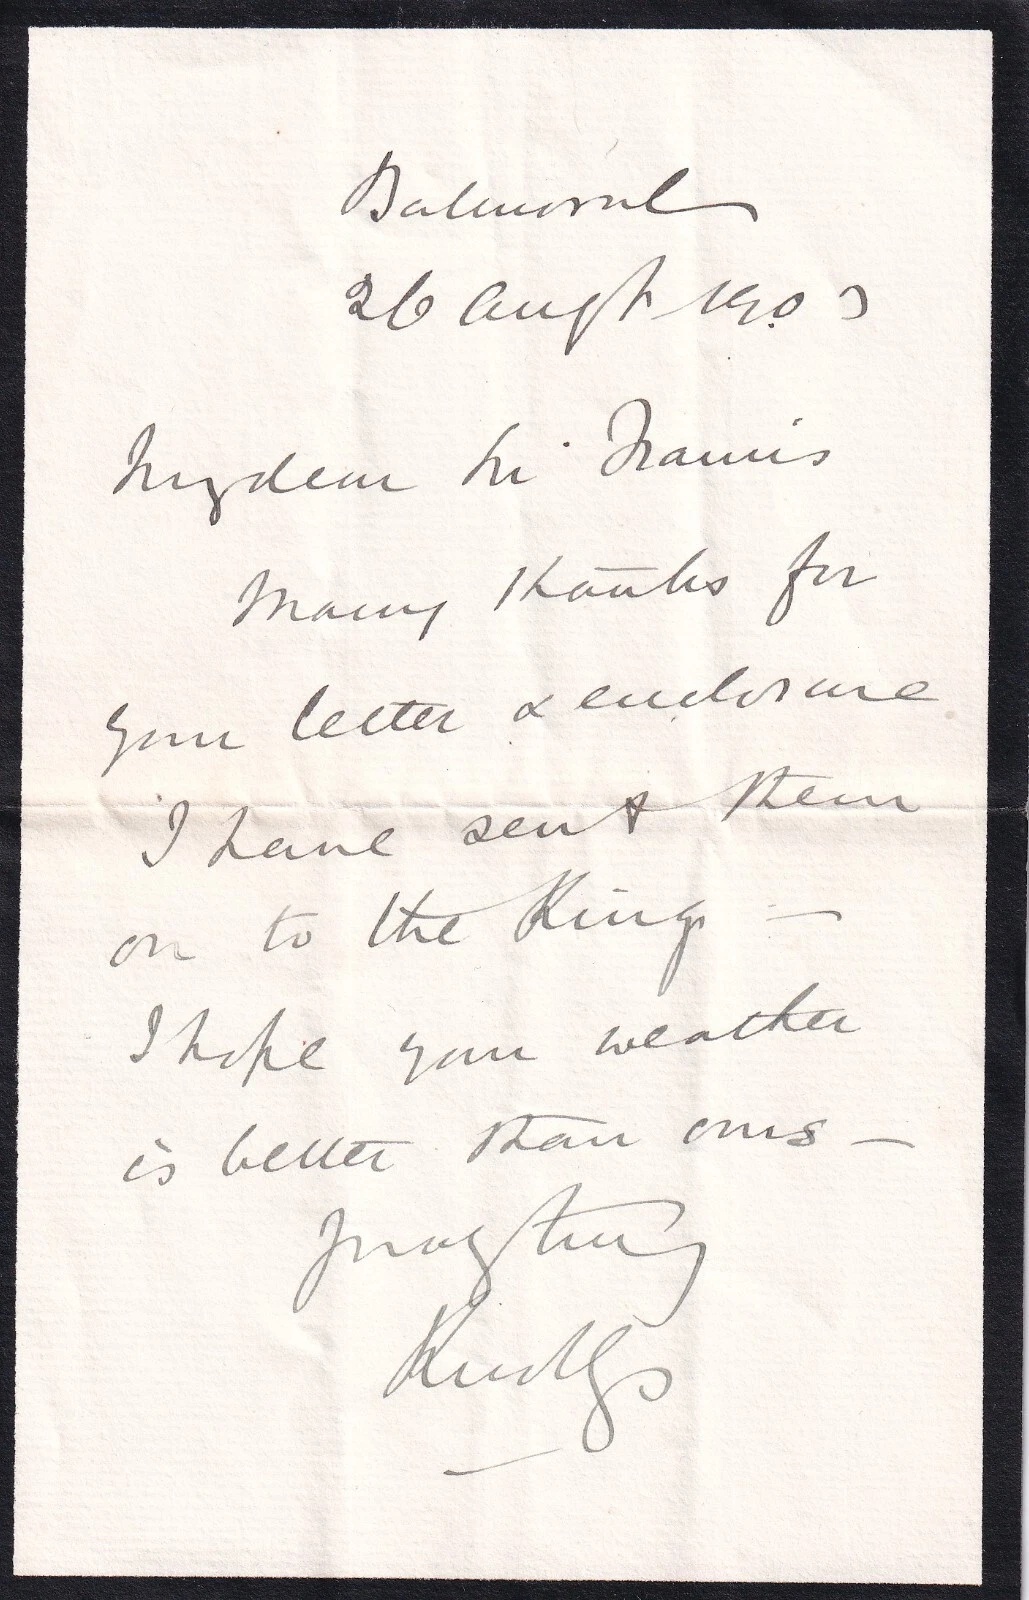 Balmoral
26 Augt 1903
My dear Sir Francis
Many thanks for
your letter & enclosure
I have sent them
on to the King —
I hope your weather
is better than ours —
Truly
Knollys